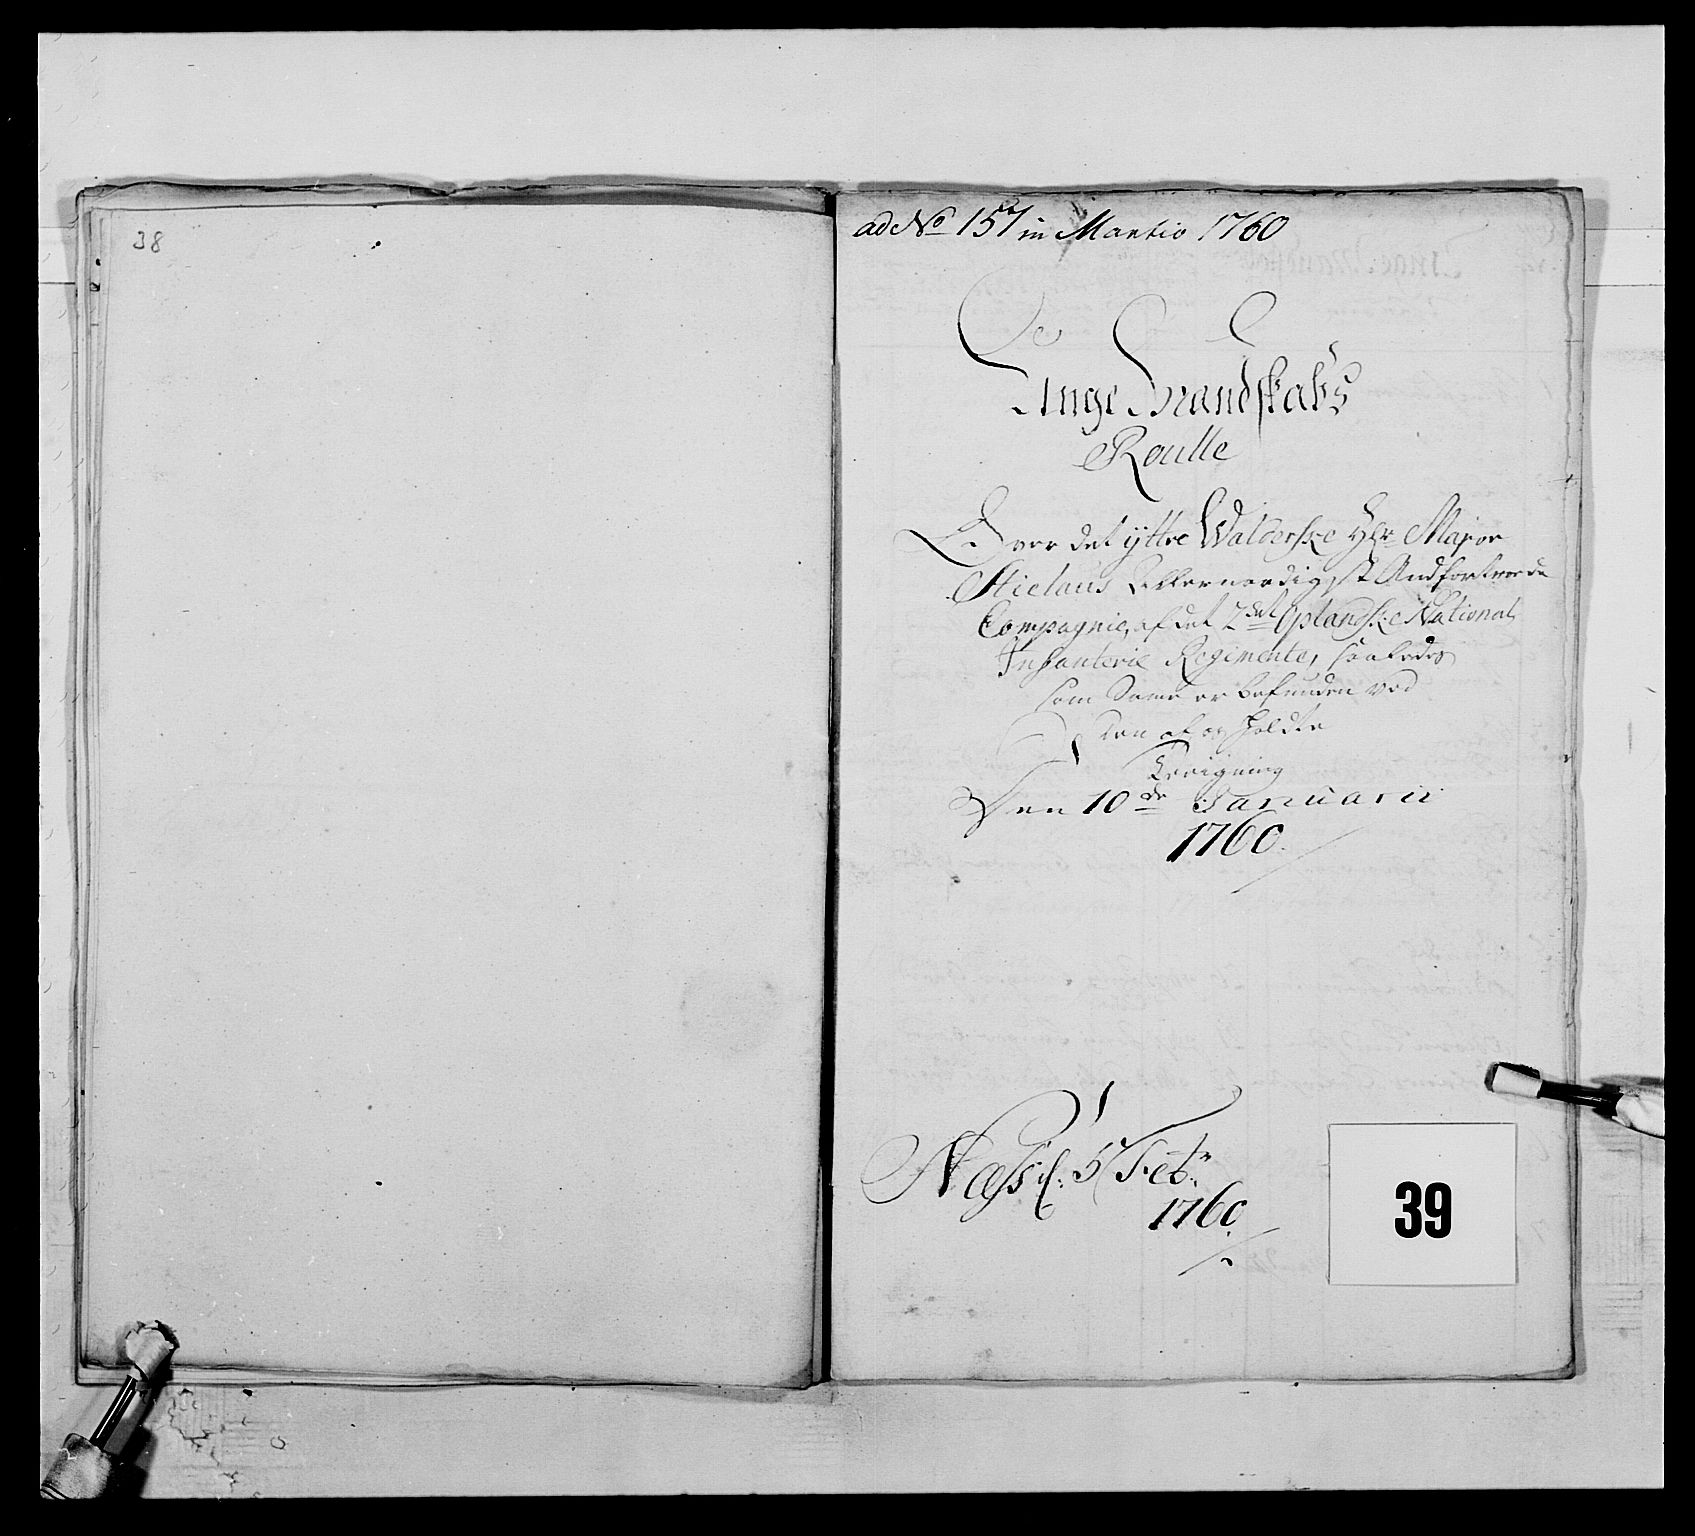 38
ad No 157 in Martio 1760
De
Unge Mandskabs
Roulle
Over det ÿttre Walderske Hr Major
Nielaus Allernaadigst Andfortroede
Compagnie, af det 2det Oplandske National
Infanterie Regimente, saaledes
som Same er befunden ved
den af os holdte
Sessigning
Den 10de Januarii
1760.
Næss d: 5 Febr
1760
39